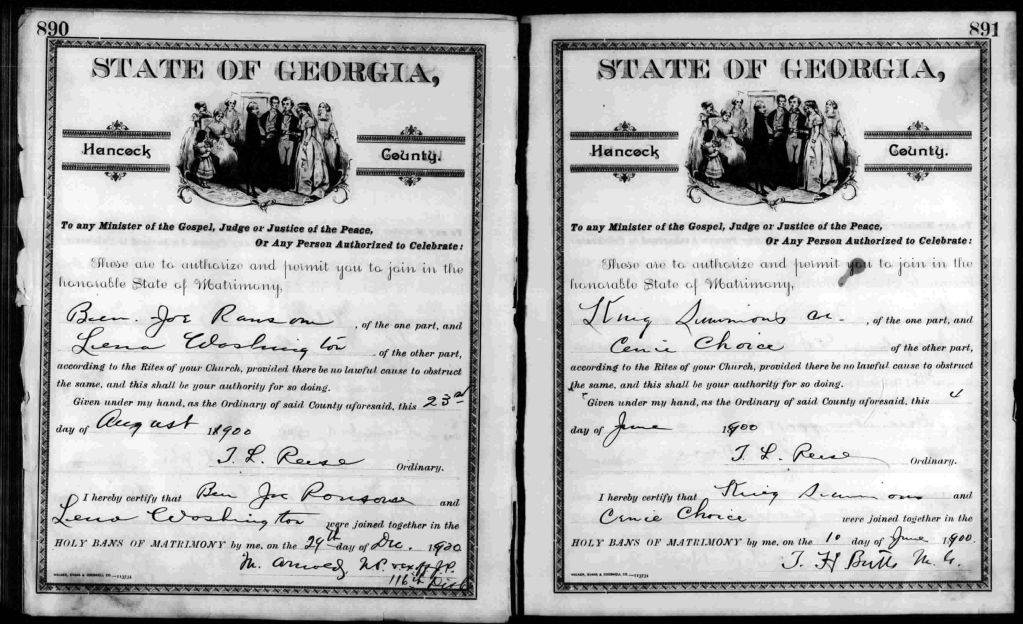 890
STATE OF GEORGIA,
Hancock County.
To any Minister of the Gospel, Judge or Justice of the Peace,
Or Any Person Authorized to Celebrate:
These are to authorize and permit you to join in the
honorable State of Matrimony,
Ben. Joe Ransom, of the one part, and
Lena Washington of the other part,
according to the Rites of your Church, provided there be no lawful cause to obstruct
the same, and this shall be your authority for so doing.
Given under my hand, as the Ordinary of said County aforesaid, this 23rd
day of August 1900
T. L. Reese Ordinary.
I hereby certify that Ben Joe Ransome and
Lena Washington were joined together in the
HOLY BANS OF MATRIMONY by me, on the 29th day of Dec. 1900
M. Arnold, N.P. & ex off J.P.
116th
WALKER, EVANS & COGSWELL CO.—113734
891
STATE OF GEORGIA,
Hancock County.
To any Minister of the Gospel, Judge or Justice of the Peace,
Or Any Person Authorized to Celebrate:
These are to authorize and permit you to join in the
honorable State of Matrimony,
King Simmons , of the one part, and
Cenie Choice of the other part,
according to the Rites of your Church, provided there be no lawful cause to obstruct
the same, and this shall be your authority for so doing.
Given under my hand, as the Ordinary of said County aforesaid, this 4
day of June 1900
T. L. Reese Ordinary.
I hereby certify that King Simmons and
Cenie Choice were joined together in the
HOLY BANS OF MATRIMONY by me, on the 10 day of June 1900.
T. H Butts M. G.
WALKER, EVANS & COGSWELL CO.—113734